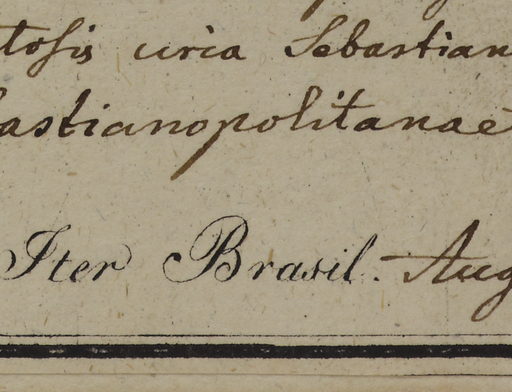 tosis circa Sebastian
astianopolitanae
Iter Brasil. Aug